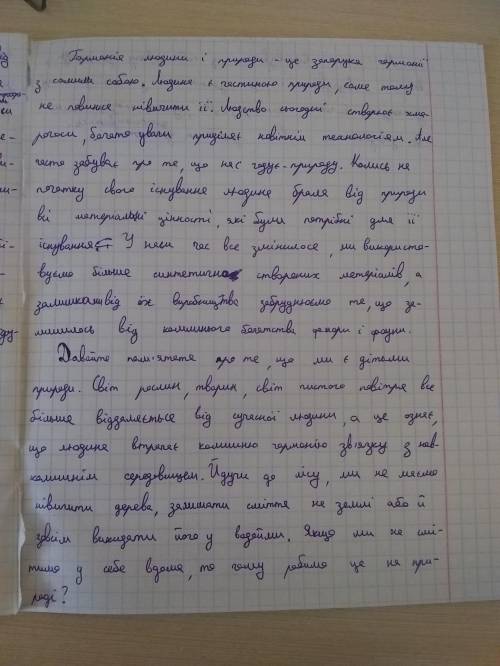 Гармонія людини і природи - це запорука гармонії
з самим собою. Людина є частиною природи, саме тому
не повинна нівичити її. Людство сьогодні створює хма-
рочоси, багато уваги приділяє новітнім технологіям. Але
часто забуває про те, що нас годує - природу. Колись на
початку свого існування людина брала від природи
всі матеріальні цінності, які були потрібні для її
існування. У наш час все змінилося, ми використо-
вуємо більше синтетично створених матеріалів, а
залишками від їх виробництва забруднюємо те, що за-
лишилось від колишнього багатства флори і фауни.
Давайте пам'ятати про те, що ми є дітьми
природи. Світ рослин, тварин, світ чистого повітря все
більше віддаляється від сучасної людини, а це означає,
що людина втрачає колишню гармонію зв'язку з нав-
колишнім середовищем. Йдучи до лісу, ми не маємо
нівичити дерева, залишати сміття на землі або й
зовсім викидати його у водойми. Якщо ми не смі-
тимо у себе вдома, то чому робимо це на при-
роді?